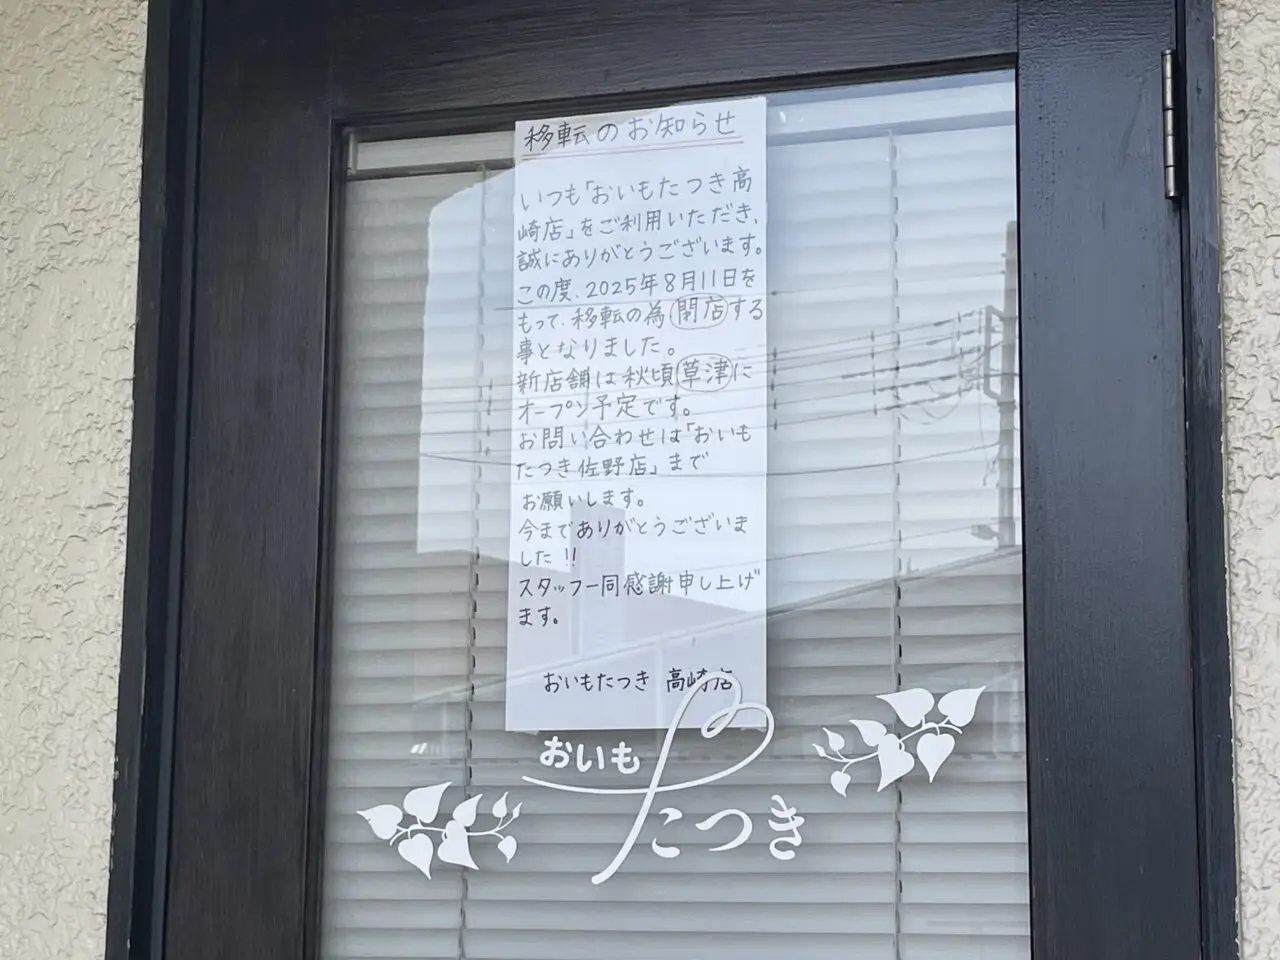 移転のお知らせ
いつも「おいもたつき高
崎店」をご利用いただき、
誠にありがとうございます。
この度、2025年8月11日を
もって、移転の為閉店する
事となりました。
新店舗は秋頃草津に
オープン予定です。
お問い合わせは「おいも
たつき佐野店」まで
お願いします。
今までありがとうございま
した!!
スタッフ一同感謝申し上げ
ます。
おいもたつき 高崎店
おいも
たつき